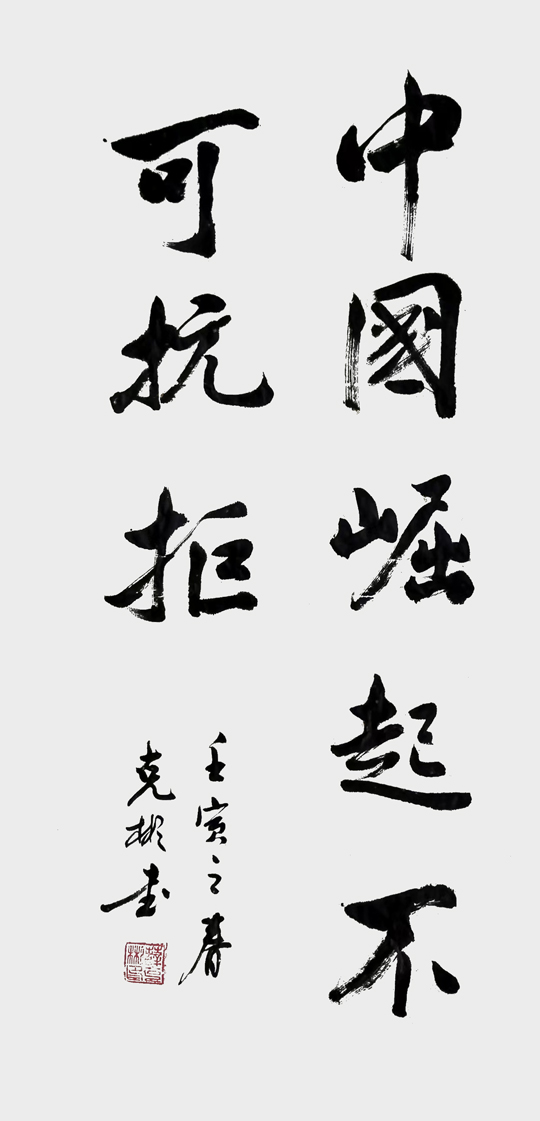 中國崛起不
可抗拒
壬寅之春
克彬书